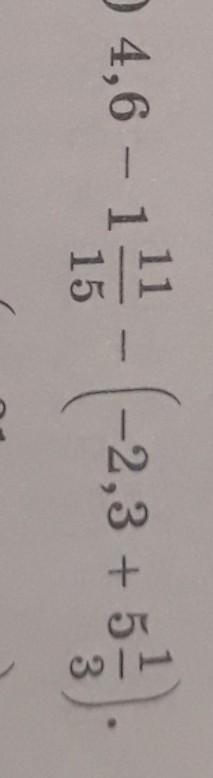 ) 4,6 − 1 11/15 − (−2,3 + 5 1/3).